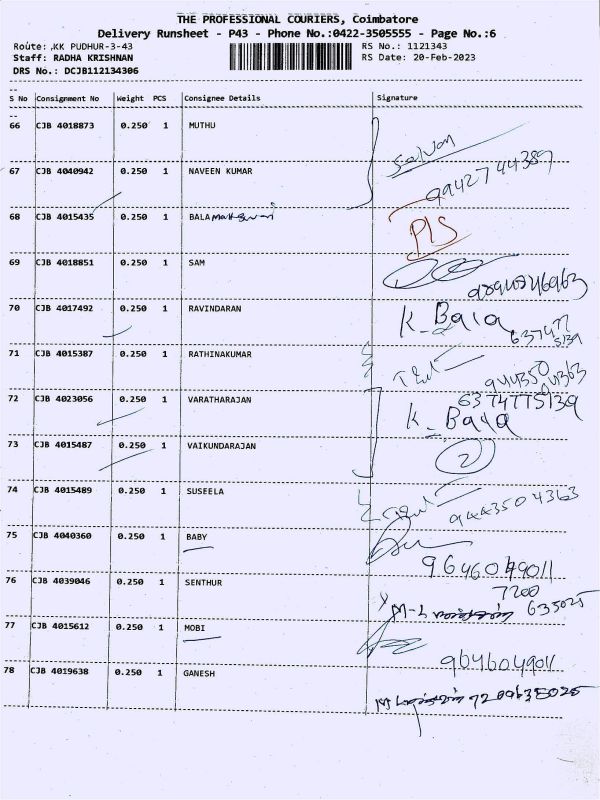 THE PROFESSIONAL COURIERS, Coimbatore
Delivery Runsheet - P43 - Phone No.:0422-3505555 - Page No.:6
Route: KK PUDHUR-3-43
RS No.: 1121343
Staff: RADHA KRISHNAN
RS Date: 20-Feb-2023
DRS No.: DCJB112134306
S No Consignment No Weight PCS Consignee Details Signature
66 CJB 4018873 0.250 1 MUTHU
Selvan
67 CJB 4040942 0.250 1 NAVEEN KUMAR
9942744389
68 CJB 4015435 0.250 1 BALA
PLS
69 CJB 4018851 0.250 1 SAM
70 CJB 4017492 0.250 1 RAVINDARAN K. Bala
637477
5139
71 CJB 4015387 0.250 1 RATHINAKUMAR
72 CJB 4023056 0.250 1 VARATHARAJAN 6374775139
K. Bala
73 CJB 4015487 0.250 1 VAIKUNDARAJAN 2
74 CJB 4015489 0.250 1 SUSEELA
9443504363
75 CJB 4040360 0.250 1 BABY
9646049011
76 CJB 4039046 0.250 1 SENTHUR 7200
635025
77 CJB 4015612 0.250 1 MOBI
9646049011
78 CJB 4019638 0.250 1 GANESH
7200635025